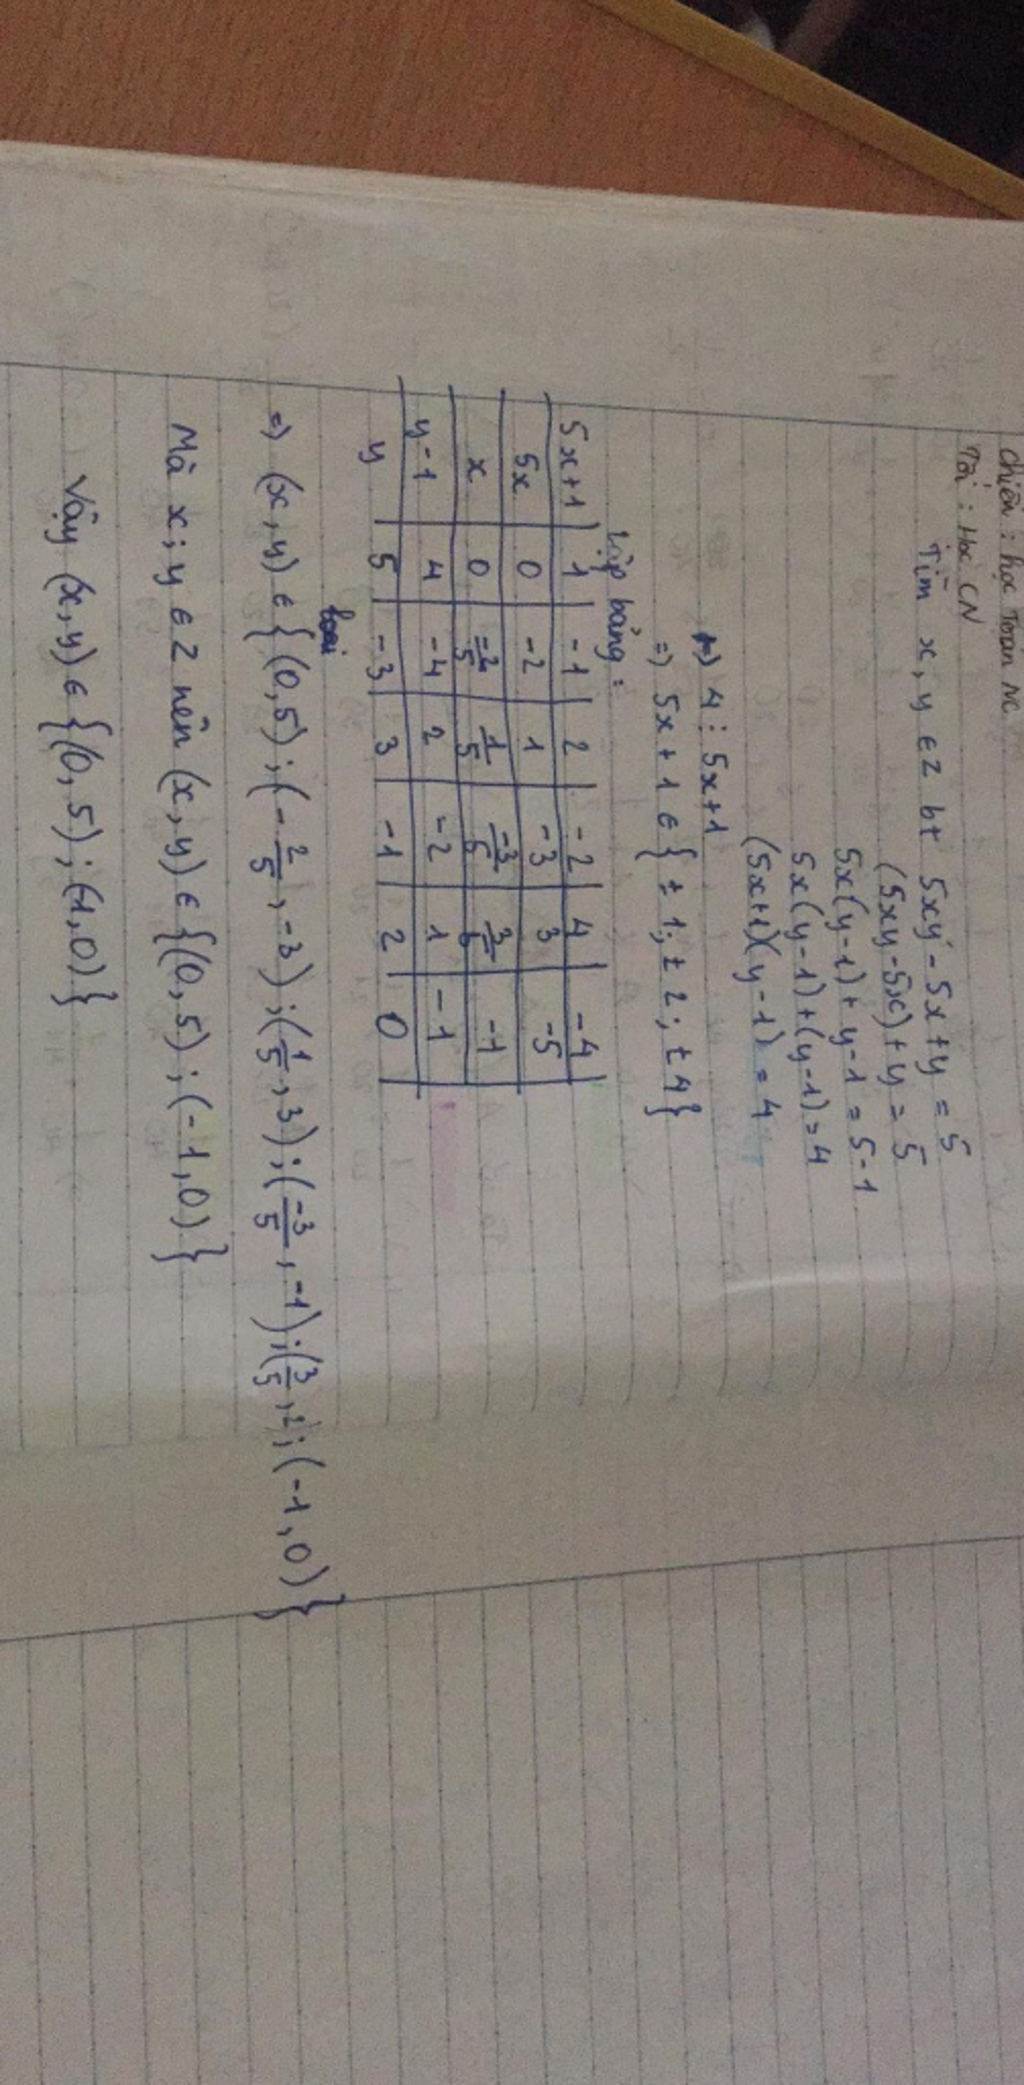 Chiều : học Toán NC
Tối : Học CN
Tìm x, y ∈ Z bt 5xy - 5x + y = 5
(5xy - 5x) + y = 5
5x(y-1) + y - 1 = 5 - 1
5x(y-1) + (y-1) = 4
(5x+1)(y-1) = 4
=> 4 ⋮ 5x+1
=> 5x+1 ∈ { ±1; ±2; ±4}
Lập bảng :
5x+1 | 1 | -1 | 2 | -2 | 4 | -4
5x | 0 | -2 | 1 | -3 | 3 | -5
x | 0 | -2/5 | 1/5 | -3/5 | 3/5 | -1
y-1 | 4 | -4 | 2 | -2 | 1 | -1
y | 5 | -3 | 3 | -1 | 2 | 0
loại
=> (x, y) ∈ { (0, 5) ; (-2/5, -3) ; (1/5, 3) ; (-3/5, -1) ; (3/5, 2) ; (-1, 0) }
Mà x; y ∈ Z nên (x, y) ∈ {(0, 5) ; (-1, 0) }
Vậy (x, y) ∈ {(0, 5) ; (-1, 0)}